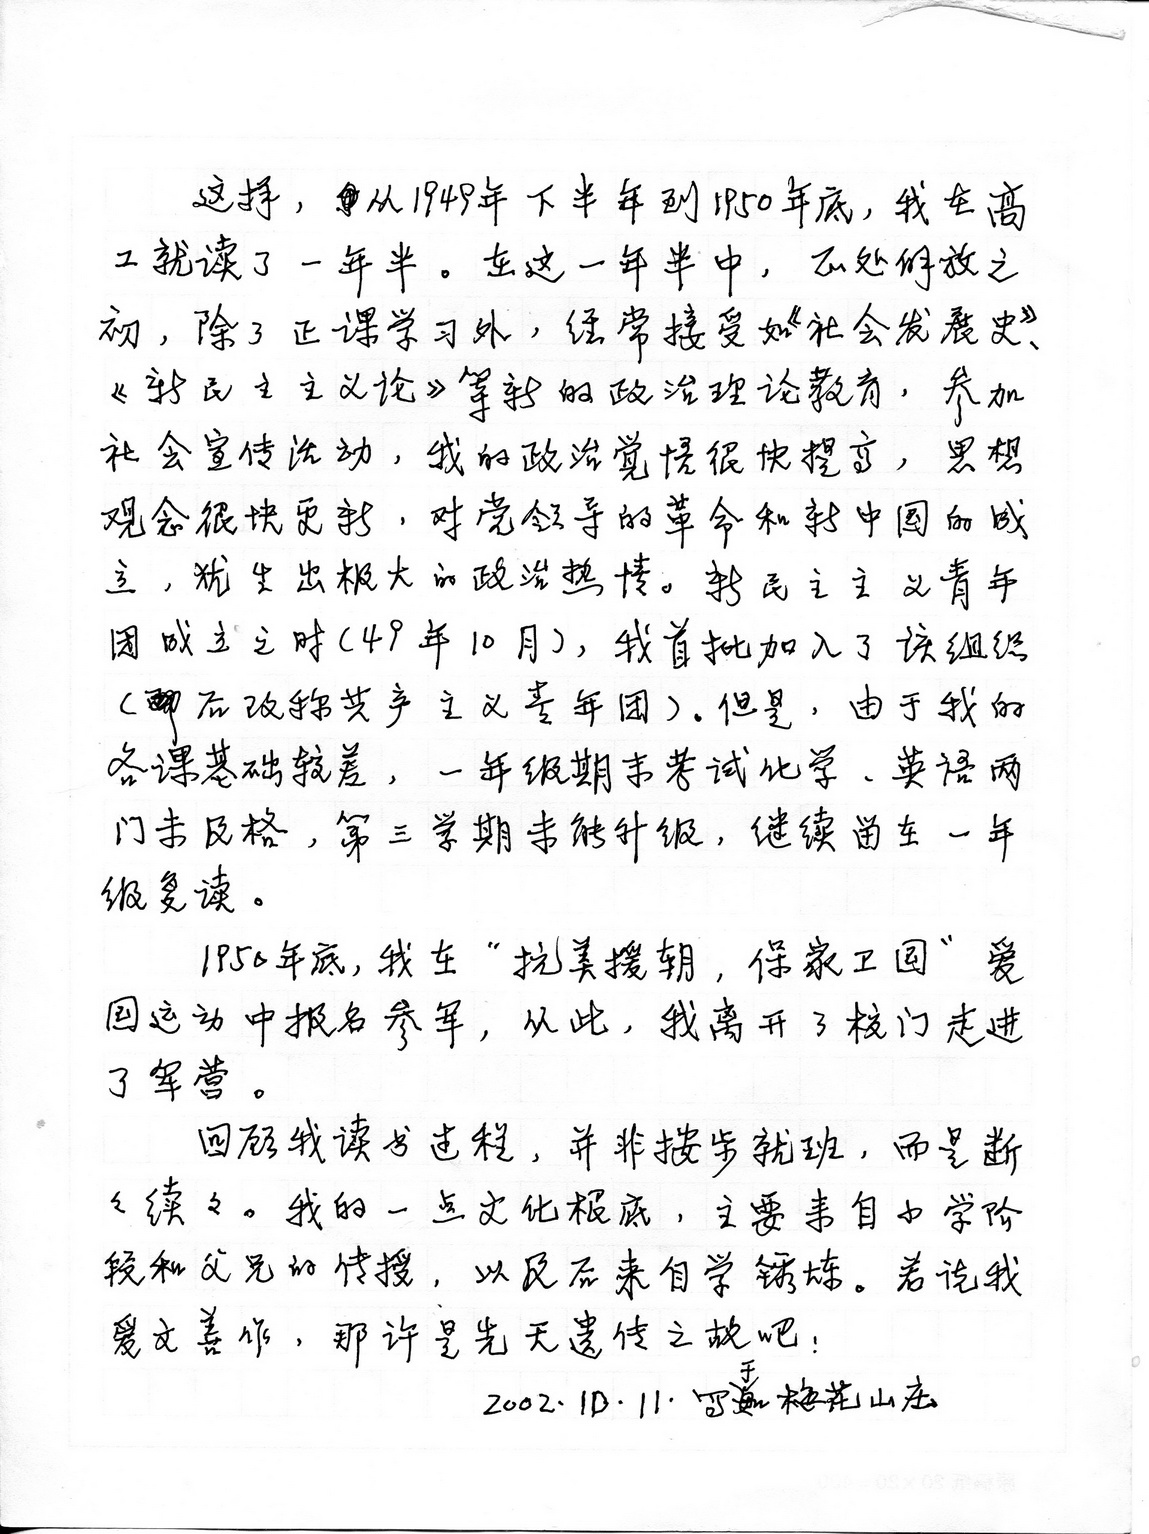 这样，从1949年下半年到1950年底，我在高
工就读了一年半。在这一年半中，正处解放之
初，除了正课学习外，经常接受如《社会发展史》、
《新民主主义论》等新的政治理论教育，参加
社会宣传活动，我的政治觉悟很快提高，思想
观念很快更新，对党领导的革命和新中国的成
立，犹生出极大的政治热情。新民主主义青年
团成立之时(49年10月)，我首批加入了该组织
(后改称共产主义青年团)。但是，由于我的
各课基础较差，一年级期末考试化学、英语两
门未及格，第三学期未能升级，继续留在一年
级复读。
1950年底，我在“抗美援朝，保家卫国”爱
国运动中报名参军，从此，我离开了校门走进
了军营。
回顾我读书过程，并非按步就班，而是断
々续々。我的一点文化根底，主要来自小学阶
段和父兄的传授，以及后来自学锈炼。若说我
爱文善作，那许是先天遗传之故吧！
2002.10.11.写于梅花山庄